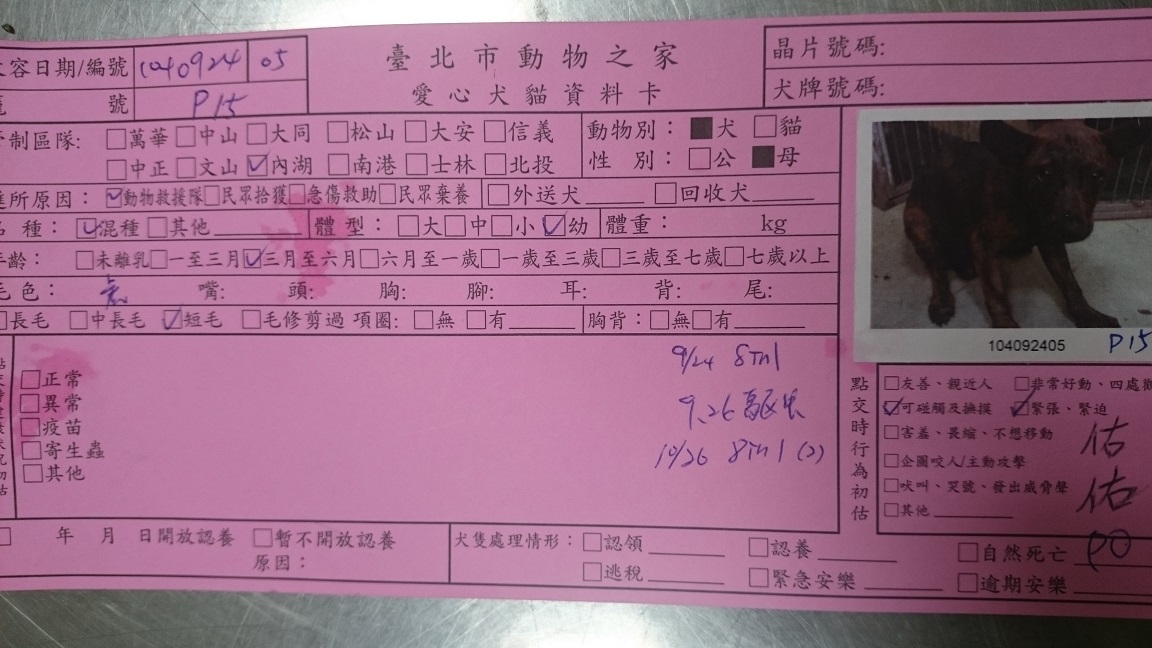 臺北市動物之家
愛心犬貓資料卡
容日期/編號 1040924 05
號 P15
晶片號碼:
犬牌號碼:
制區隊: □萬華□中山□大同 □松山□大安□信義
□中正□文山☑內湖 □南港□士林□北投
動物別: ■犬 □貓
性 別: □公 ■母
所原因: ☑動物救援隊□民眾拾獲□急傷救助□民眾棄養 □外送犬____ □回收犬____
種: ☑混種□其他______ 體 型: □大□中□小☑幼 體重: kg
齡: □未離乳□一至三月☑三月至六月□六月至一歲□一歲至三歲□三歲至七歲□七歲以上
毛色: 虎 嘴: 頭: 胸: 腳: 耳: 背: 尾:
□長毛 □中長毛 ☑短毛 □毛修剪過 項圈: □無 □有____ 胸背: □無□有____
104092405 P15
□正常
□異常
□疫苗
□寄生蟲
□其他
9/24 8in1
9.26 驅虫
10/26 8in1 (2)
點交時行為初估
□友善、親近人 □非常好動、四處
☑可碰觸及撫摸 ☑緊張、緊迫
□害羞、畏縮、不想移動
□企圖咬人/主動攻擊
□吠叫、哭號、發出威脅聲
□其他______
佑
佑
PO
□ 年 月 日開放認養 □暫不開放認養
原因:
犬隻處理情形: □認領____ □認養____ □自然死亡____
□逃稅____ □緊急安樂____ □逾期安樂____